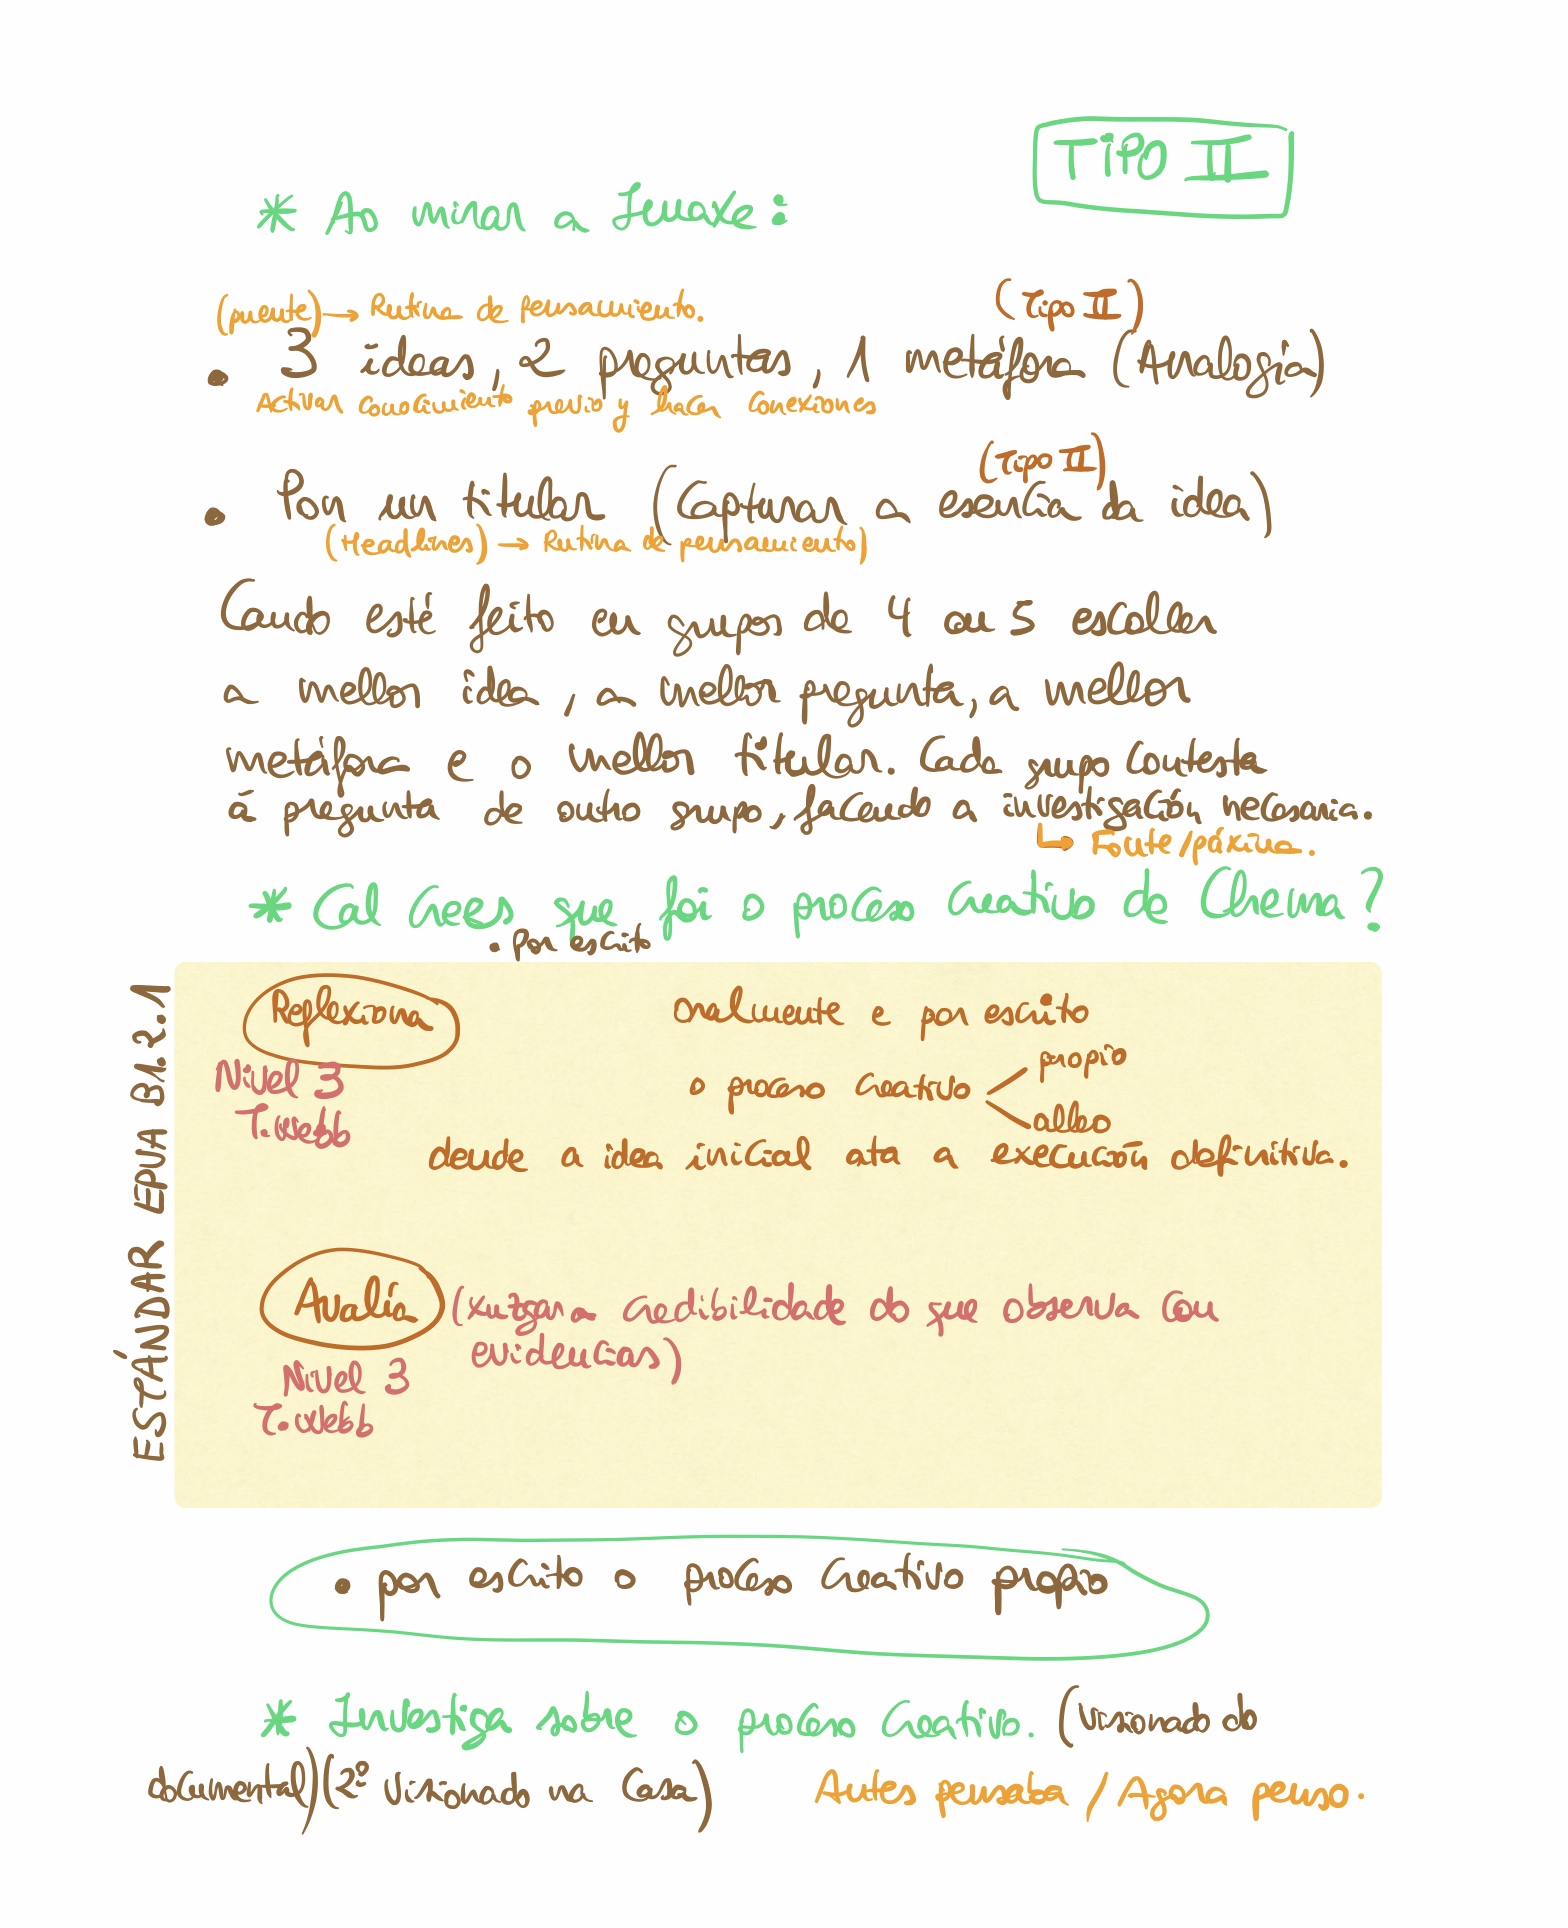 TIPO II
* Ao mirar a Imaxe:
(puente) → Rutina de pensamiento.
(Tipo II)
• 3 ideas, 2 preguntas, 1 metáfora (Analogía)
Activar conocimiento previo y hacer conexiones
(Tipo II)
• Pon un titular (Capturar a esencia da idea)
(Headlines) → Rutina de pensamiento)
Cando esté feito en grupos de 4 ou 5 escoller
a mellor idea, a mellor pregunta, a mellor
metáfora e o mellor titular. Cada grupo contesta
á pregunta de outro grupo, facendo a investigación necesaria.
↳ Fonte/páxina.
* Cal crees que foi o proceso creativo de Chema?
• Por escrito
ESTÁNDAR EPVA B1.2.1
Reflexiona
oralmente e por escrito
Nivel 3
T. Webb
o proceso creativo
propio
alleo
dende a idea inicial ata a execución definitiva.
Avalía (xulgar a credibilidade do que observa con
evidencias)
Nivel 3
T. Webb
• por escrito o proceso creativo propio
* Investiga sobre o proceso creativo. (Visionado do
documental) (2º visionado na casa) Antes pensaba / Agora penso.